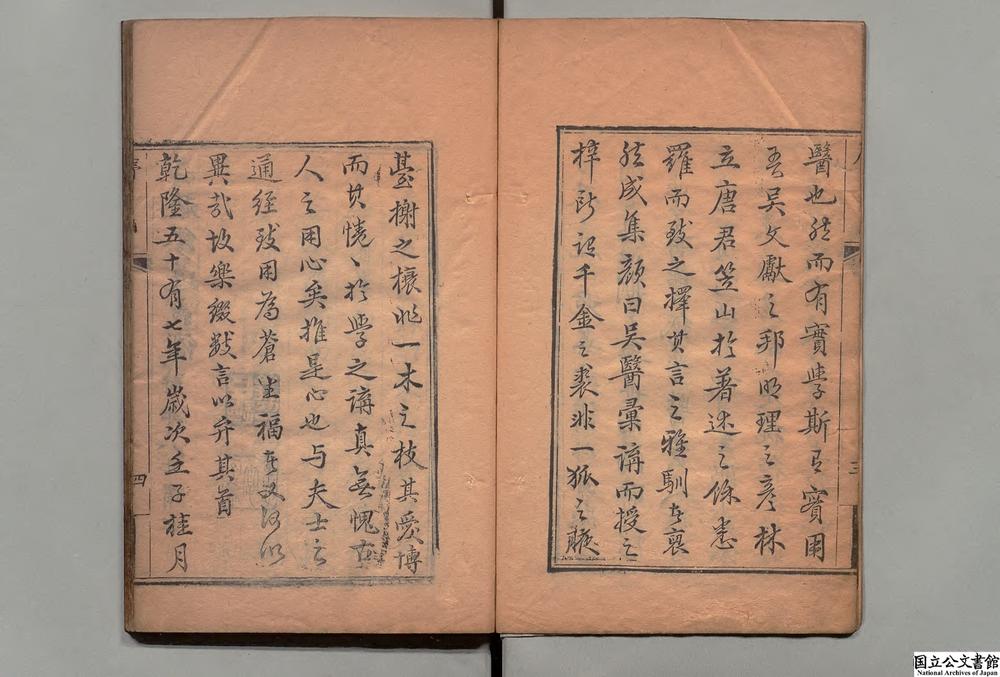 醫也然而有實學斯有實用
吾吳文獻之邦明理之彥林
立唐君笠山於著述之餘悉
羅而致之擇其言之雅馴者裒
然成集顏曰吳醫彙講而授之
梓所謂千金之裘非一狐之腋
三
臺榭之榱非一木之枝其愛博
而其惓〻於學之講真無愧古
人之用心矣推是心也与夫士之
通經致用為蒼生福者又何以
異哉故樂綴數言以弁其首
乾隆五十有七年歲次壬子桂月
四
国立公文書館
National Archives of Japan